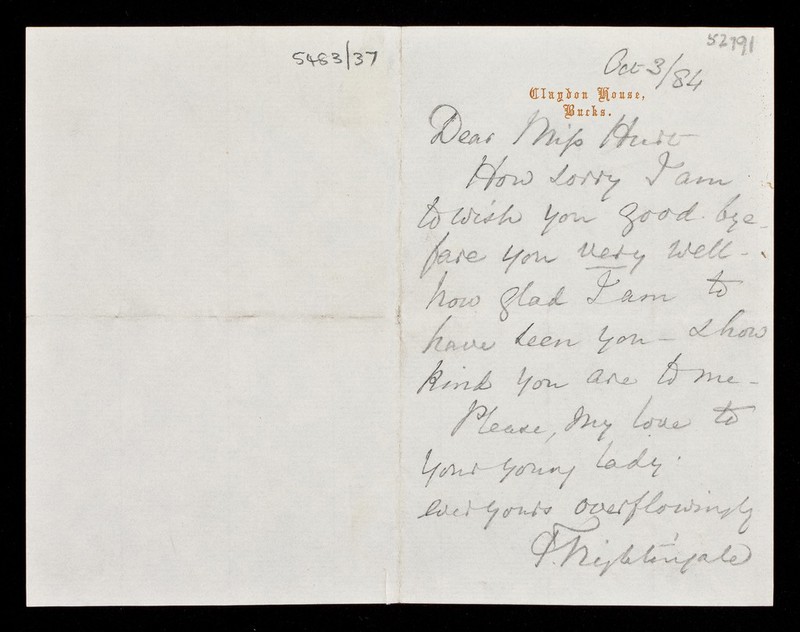 5483/37
52791
Oct 3/84
Claydon House,
Bucks.
Dear Miss Hurt
How sorry I am
to wish you good-bye
fare you very well -
how glad I am to
have seen you - & how
kind you are to me -
Please, my love to
your young lady.
ever yours overflowingly
F. Nightingale